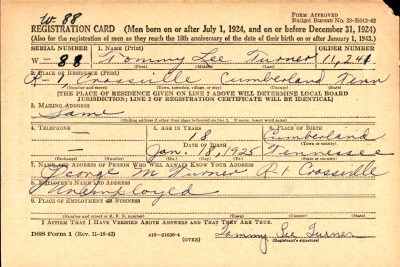 W-88
FORM APPROVED
Budget Bureau No. 33-R012-42
REGISTRATION CARD (Men born on or after July 1, 1924, and on or before December 31, 1924)
(Also for the registration of men as they reach the 18th anniversary of the date of their birth on or after January 1, 1943.)
SERIAL NUMBER 1. NAME (Print) ORDER NUMBER
W- 88 Tommy Lee Turner 11,241
2. PLACE OF RESIDENCE (Print)
R-1 Crossville Cumberland Tenn
(Number and street) (Town, township, village, or city) (County) (State)
[THE PLACE OF RESIDENCE GIVEN ON LINE 2 ABOVE WILL DETERMINE LOCAL BOARD
JURISDICTION; LINE 2 OF REGISTRATION CERTIFICATE WILL BE IDENTICAL]
3. MAILING ADDRESS
Same
[Mailing address if other than place indicated on line 2. If same, insert word same]
4. TELEPHONE 5. AGE IN YEARS 6. PLACE OF BIRTH
— 18 Cumberland
DATE OF BIRTH (Town or county)
— Jan. 1925 Tennessee
(Exchange) (Number) (Mo.) (Day) (Yr.) (State or country)
7. NAME AND ADDRESS OF PERSON WHO WILL ALWAYS KNOW YOUR ADDRESS
George M Turner R-1 Crossville
8. EMPLOYER'S NAME AND ADDRESS
Unemployed
9. PLACE OF EMPLOYMENT OR BUSINESS
(Number and street or R. F. D. number) (Town) (County) (State)
I AFFIRM THAT I HAVE VERIFIED ABOVE ANSWERS AND THAT THEY ARE TRUE.
DSS Form 1 (Rev. 11-16-42) (OVER) Tommy Lee Turner
(Registrant's signature)